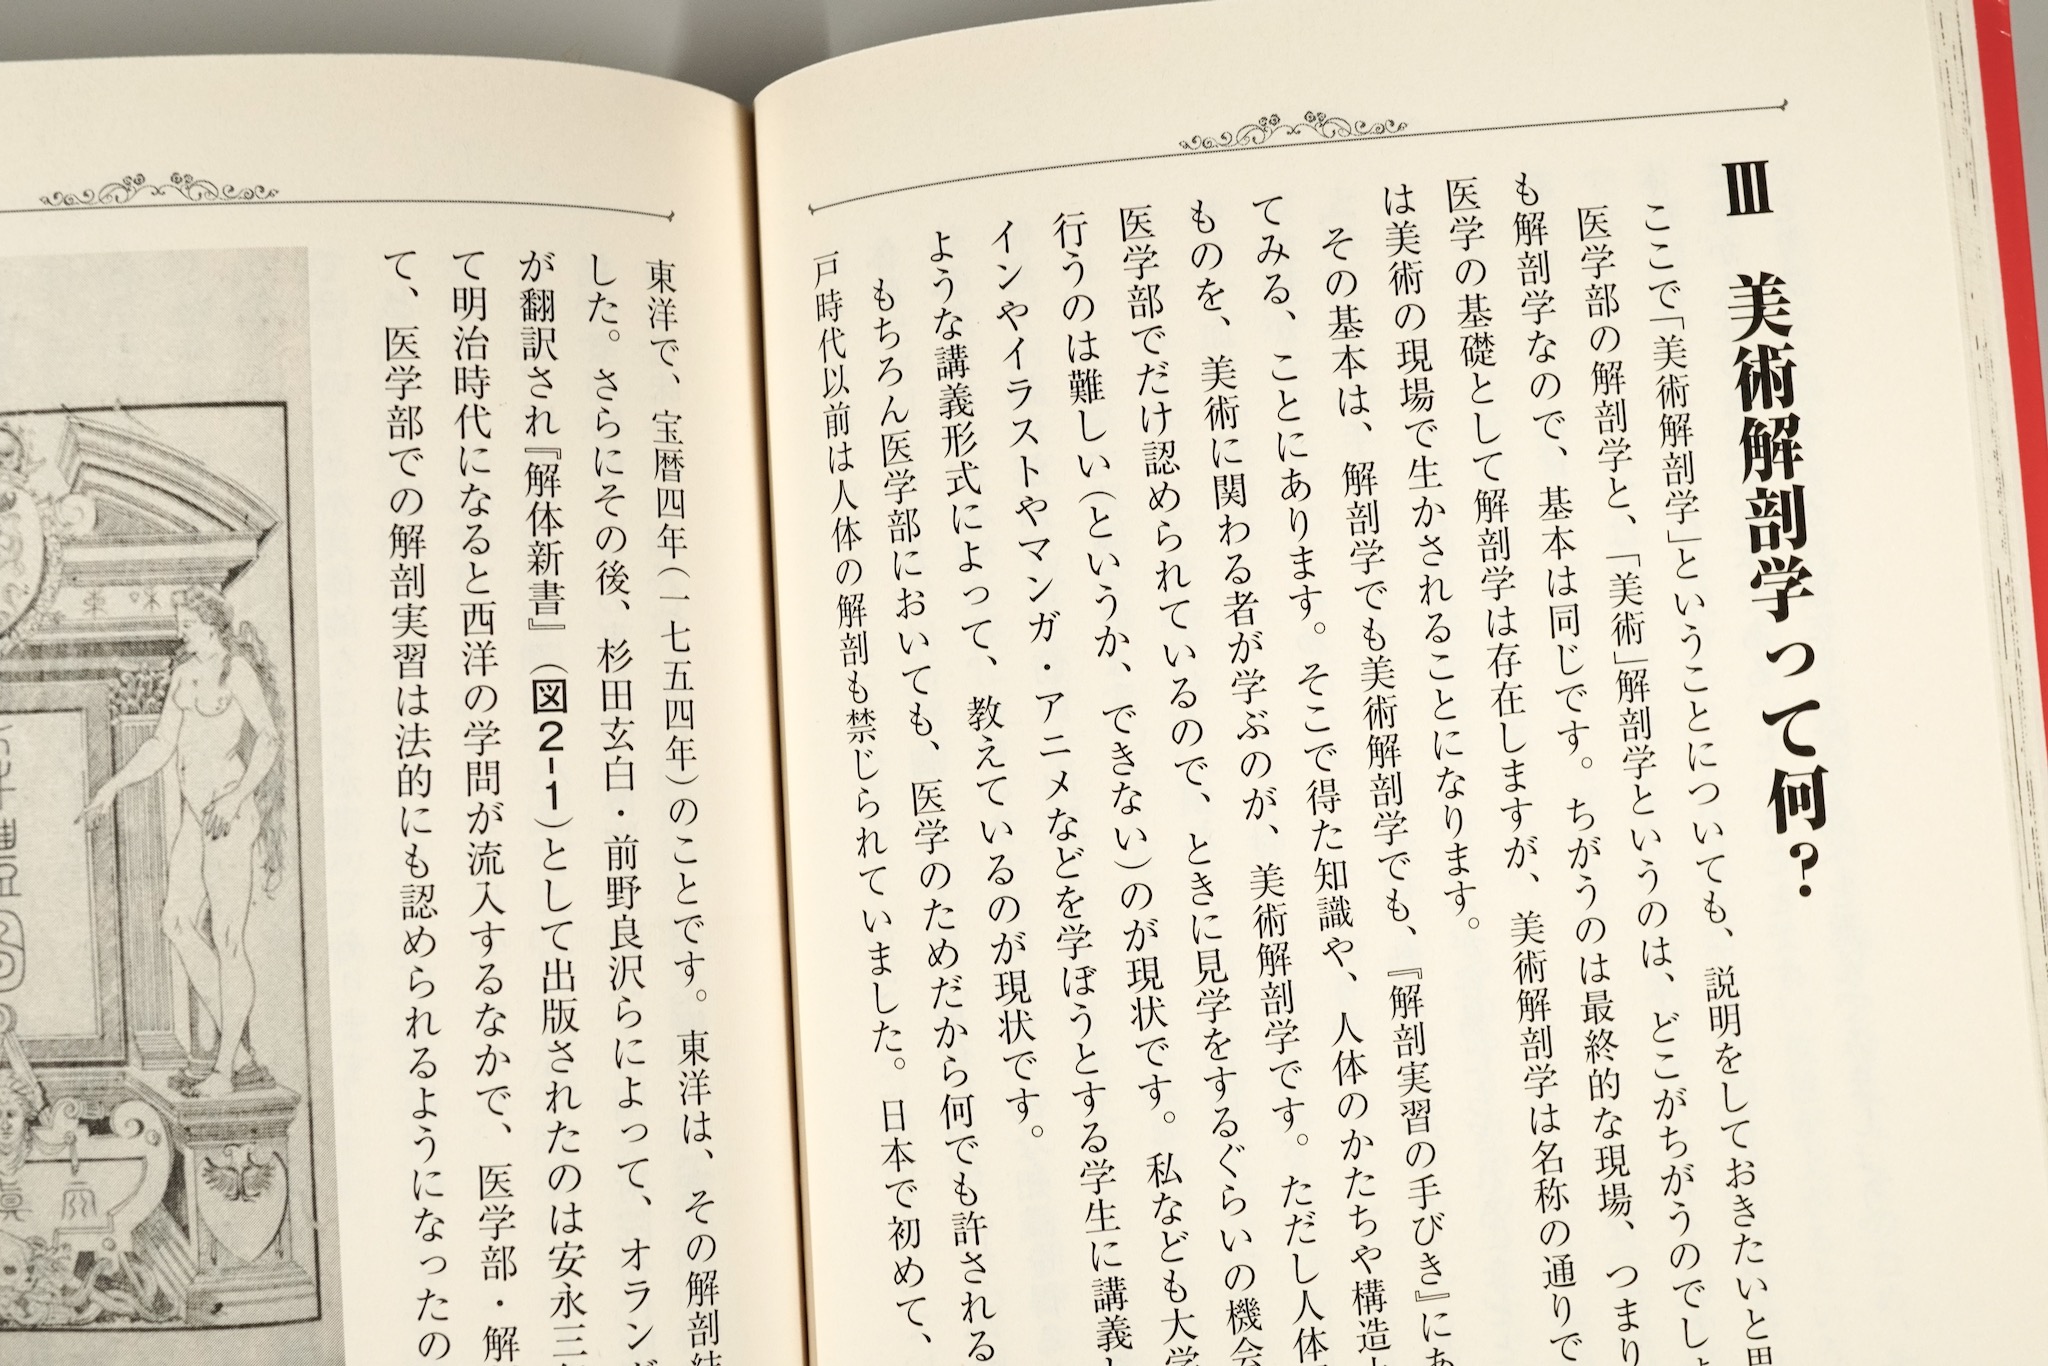 Ⅲ 美術解剖学って何？
ここで「美術解剖学」ということについても、説明をしておきたいと思
医学部の解剖学と、「美術」解剖学というのは、どこがちがうのでしょ
も解剖学なので、基本は同じです。ちがうのは最終的な現場、つまり
医学の基礎として解剖学は存在しますが、美術解剖学は名称の通りで
は美術の現場で生かされることになります。
その基本は、解剖学でも美術解剖学でも、『解剖実習の手びき』にあ
てみる、ことにあります。そこで得た知識や、人体のかたちや構造と
ものを、美術に関わる者が学ぶのが、美術解剖学です。ただし人体
医学部でだけ認められているので、ときに見学をするぐらいの機会
行うのは難しい（というか、できない）のが現状です。私なども大学
インやイラストやマンガ・アニメなどを学ぼうとする学生に講義
ような講義形式によって、教えているのが現状です。
もちろん医学部においても、医学のためだから何でも許される
戸時代以前は人体の解剖も禁じられていました。日本で初めて、
東洋で、宝暦四年（一七五四年）のことです。東洋は、その解剖結
した。さらにその後、杉田玄白・前野良沢らによって、オラン
が翻訳され『解体新書』（図2-1）として出版されたのは安永三
て明治時代になると西洋の学問が流入するなかで、医学部・解
て、医学部での解剖実習は法的にも認められるようになったの